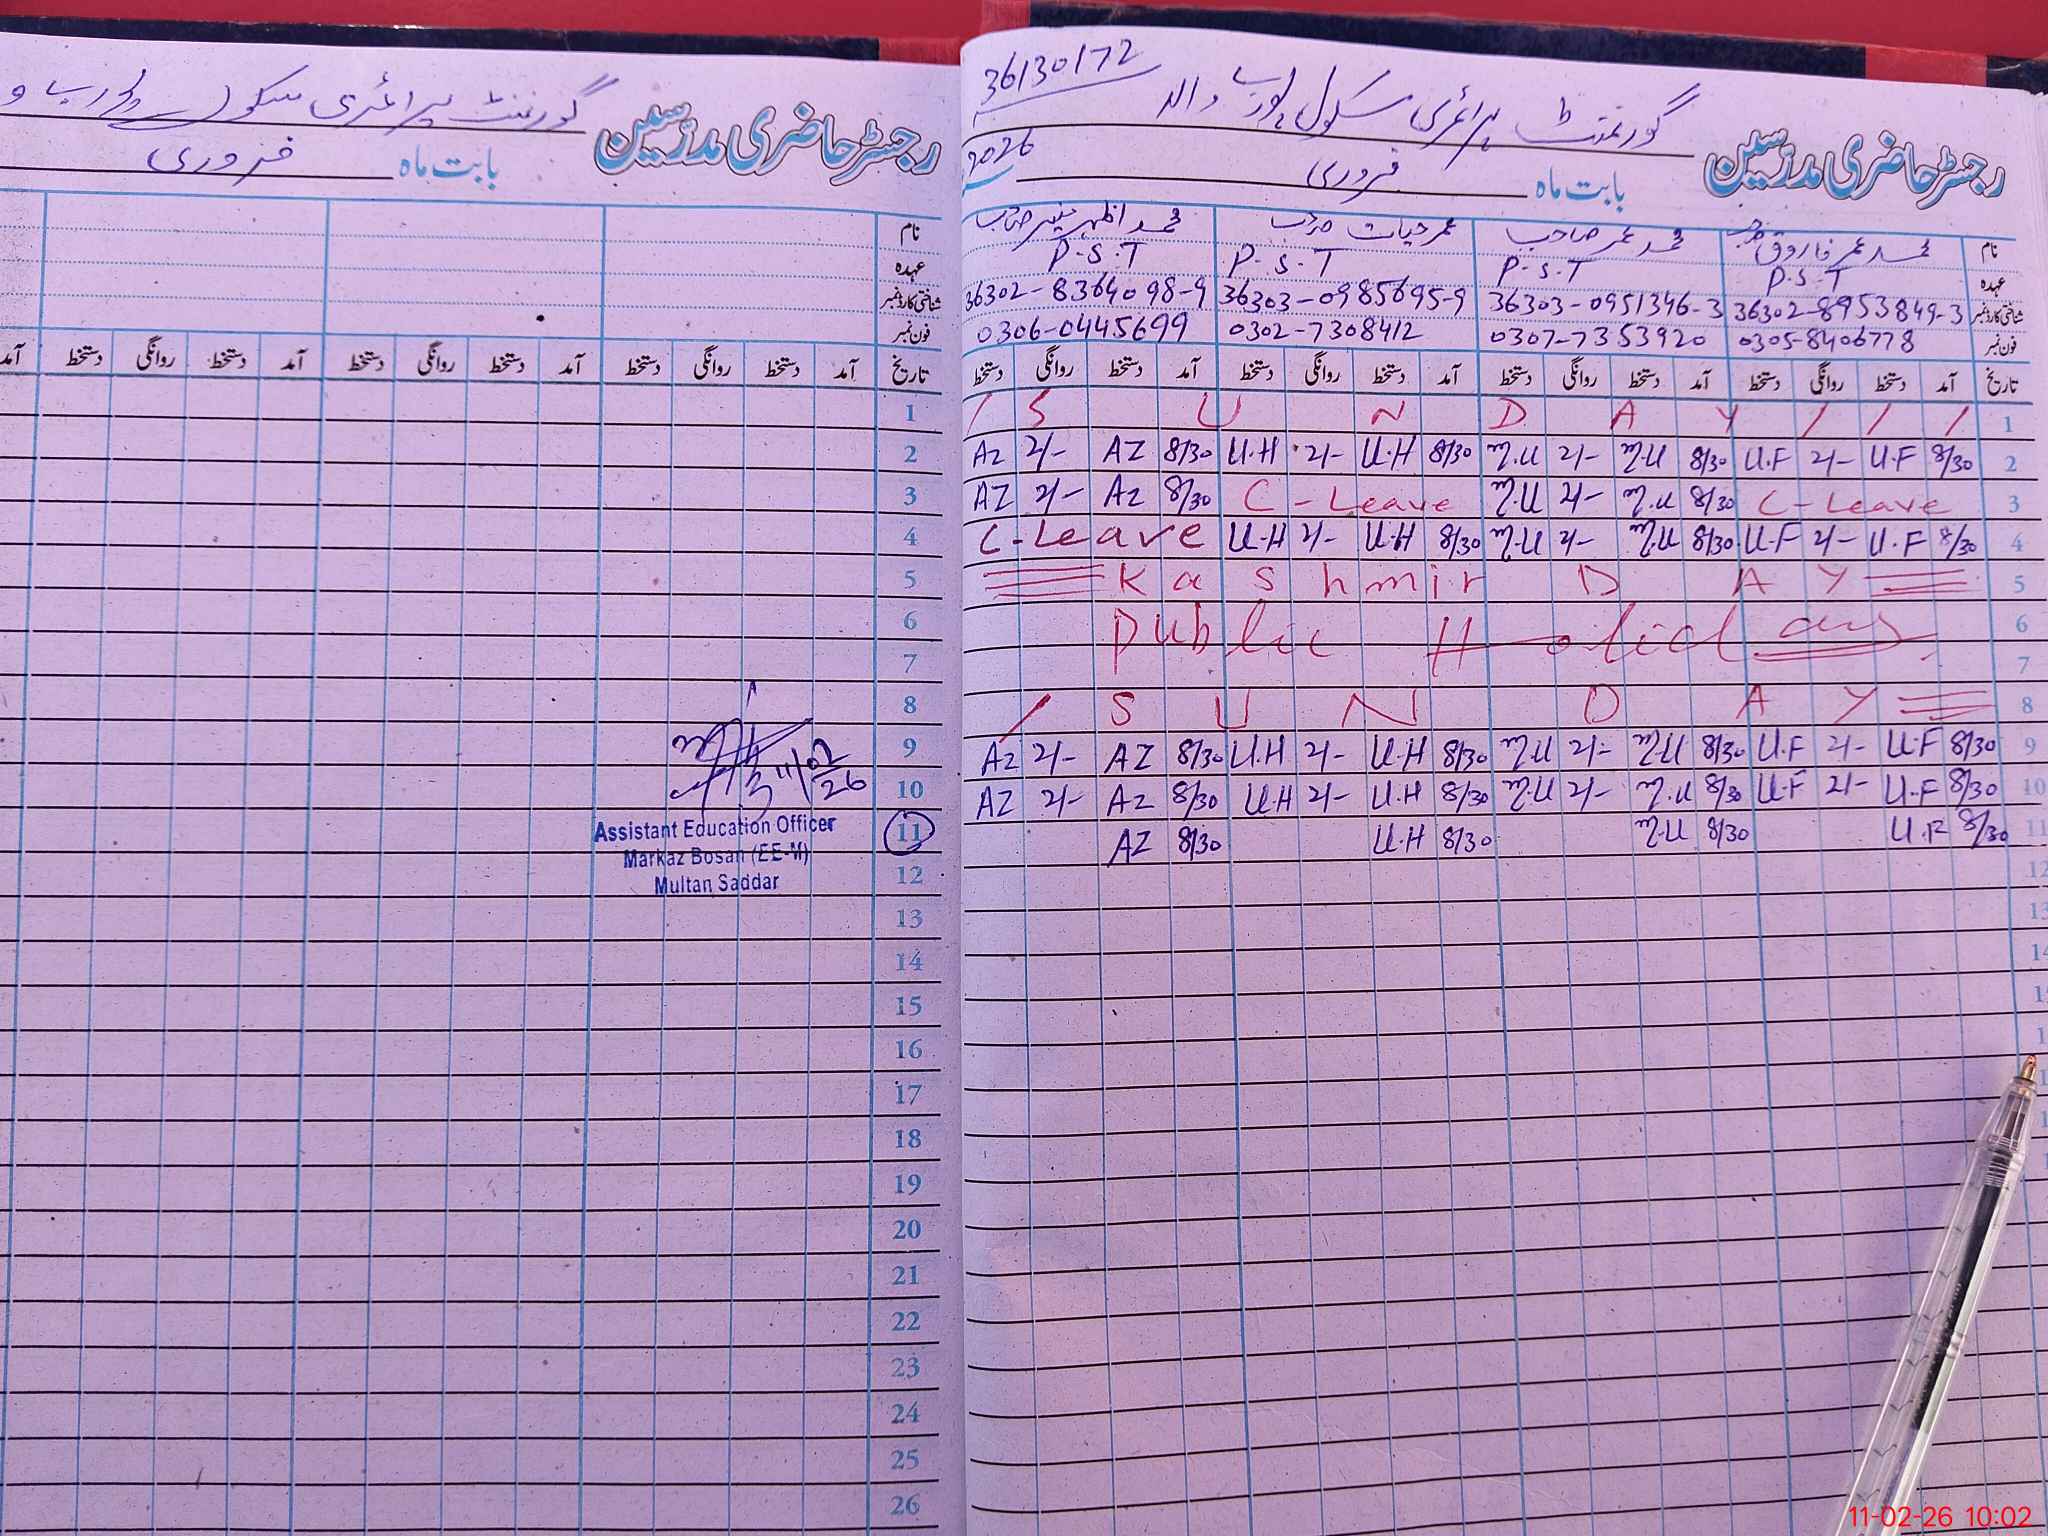 رجسٹر حاضری مدرسین گورنمنٹ پرائمری سکول
بابت ماہ فروری
نام
عہدہ
شناختی کارڈ نمبر
فون نمبر
تاریخ آمد دستخط روانگی دستخط آمد دستخط روانگی دستخط آمد دستخط روانگی دستخط آمد
1
2
3
4
5
6
7
8
9
10
11/02/26
11
Assistant Education Officer
Markaz Bosan (EE-M)
Multan Saddar
12
13
14
15
16
17
18
19
20
21
22
23
24
25
26
36130172
رجسٹر حاضری مدرسین گورنمنٹ پرائمری سکول
بابت ماہ فروری 2026
نام محمد عمر فاروق صاحب محمد عمر صاحب عمر حیات صاحب محمد اظہر منیر صاحب
عہدہ P.S.T P.S.T P.S.T P.S.T
شناختی کارڈ نمبر 36302-8953849-3 36303-0951346-3 36303-0985695-9 36302-8364098-9
فون نمبر 0305-8406778 0307-7353920 0302-7308412 0306-0445699
تاریخ آمد دستخط روانگی دستخط آمد دستخط روانگی دستخط آمد دستخط روانگی دستخط آمد دستخط روانگی دستخط
/ S U N D A Y / / / 1
AZ 2/- AZ 8/30 U.H 2/- U.H 8/30 2/- 8/30 U.F 2/- U.F 8/30 2
AZ 2/- AZ 8/30 C - Leave 2/- 8/30 C - Leave 3
C - Leave U.H 2/- U.H 8/30 2/- 8/30 U.F 2/- U.F 8/30 4
Kashmir DAY 5
Public Holiday 6
7
/ S U N D A Y 8
AZ 2/- AZ 8/30 U.H 2/- U.H 8/30 2/- 8/30 U.F 2/- U.F 8/30 9
AZ 2/- AZ 8/30 U.H 2/- U.H 8/30 2/- 8/30 U.F 2/- U.F 8/30 10
AZ 8/30 U.H 8/30 8/30 U.F 8/30 11
12
13
14
11-02-26 10:02